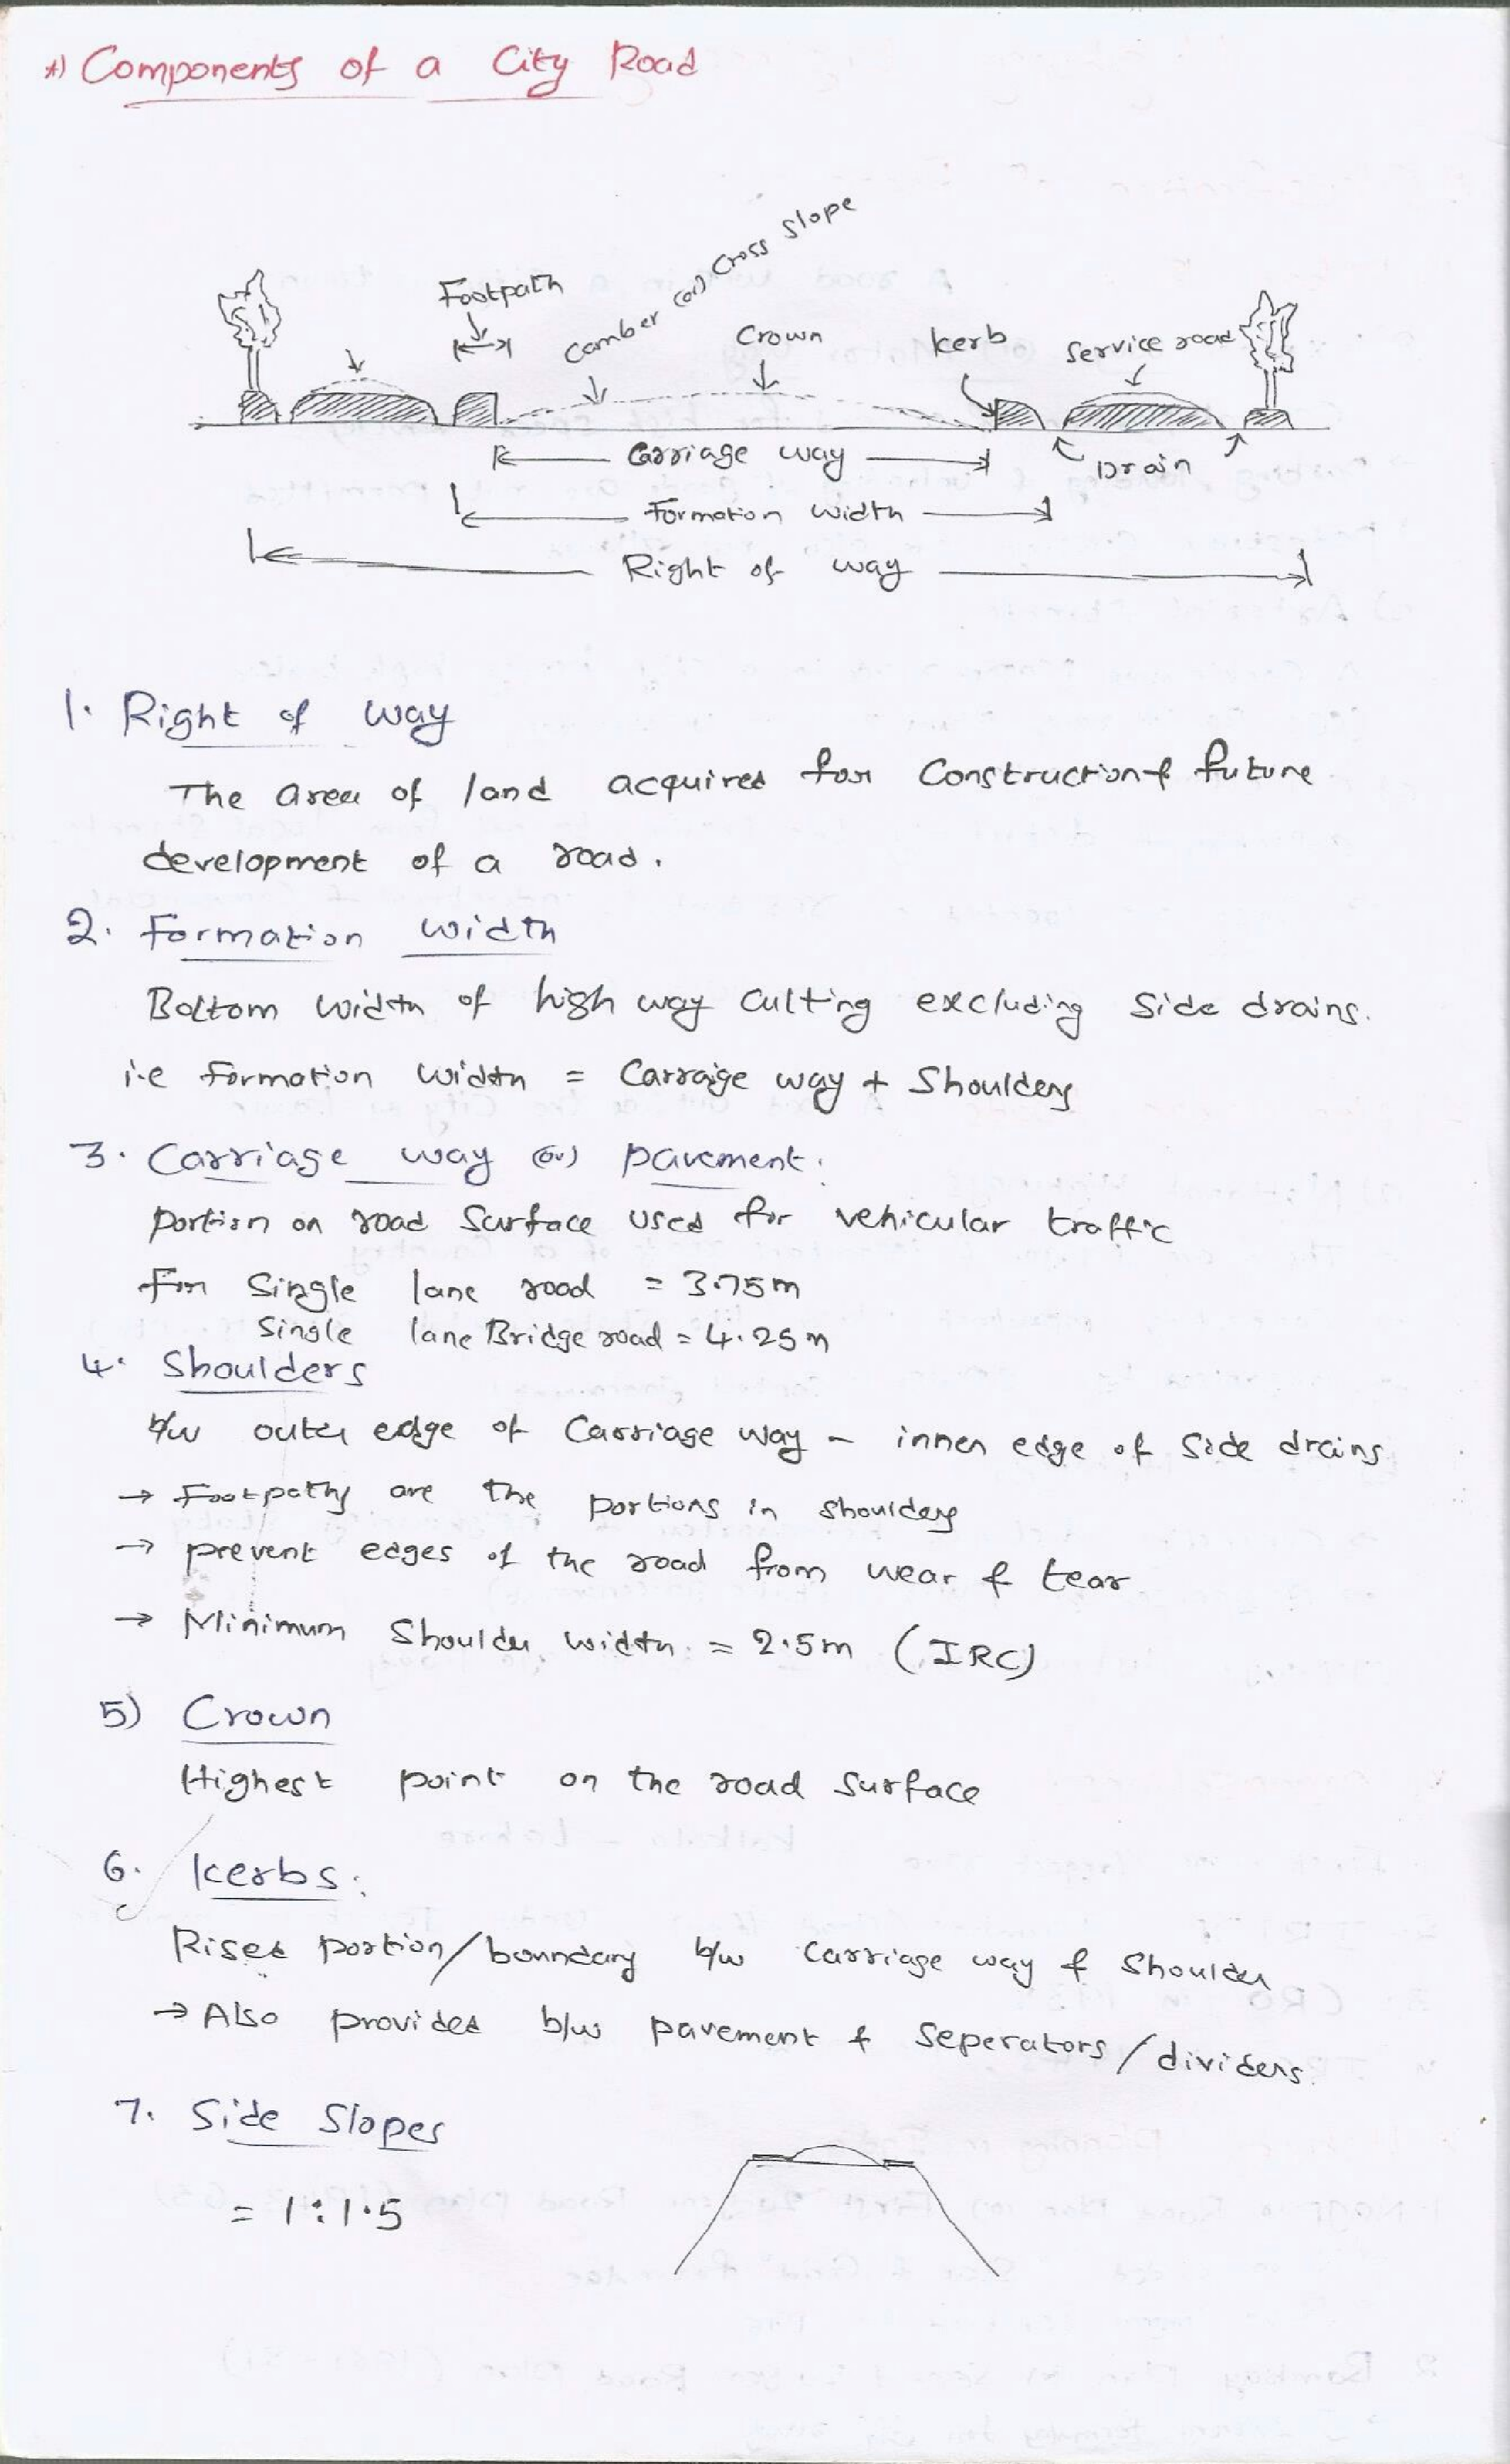 *) Components of a City Road
Footpath
Camber (or) Cross Slope
Crown
kerb
Service road
Carriage way
Drain
Formation width
Right of way
1. Right of way
The area of land acquired for Construction & future
development of a road.
2. Formation width
Bottom width of high way cutting excluding Side drains.
i.e formation width = Carraige way + Shoulders
3. Carriage way (or) pavement:
portion on road Surface used for vehicular traffic
For Single lane road = 3.75m
Single lane Bridge road = 4.25m
4. Shoulders
b/w outer edge of Carriage way - inner edge of Side drains
→ Footpaths are the portions in shoulders
→ prevent edges of the road from wear & tear
→ Minimum Shoulder width = 2.5m (IRC)
5) Crown
Highest point on the road surface
6. kerbs:
Rised portion/boundary b/w Carriage way & Shoulder
→ Also provided b/w pavement & Seperators/dividers.
7. Side Slopes
= 1:1.5